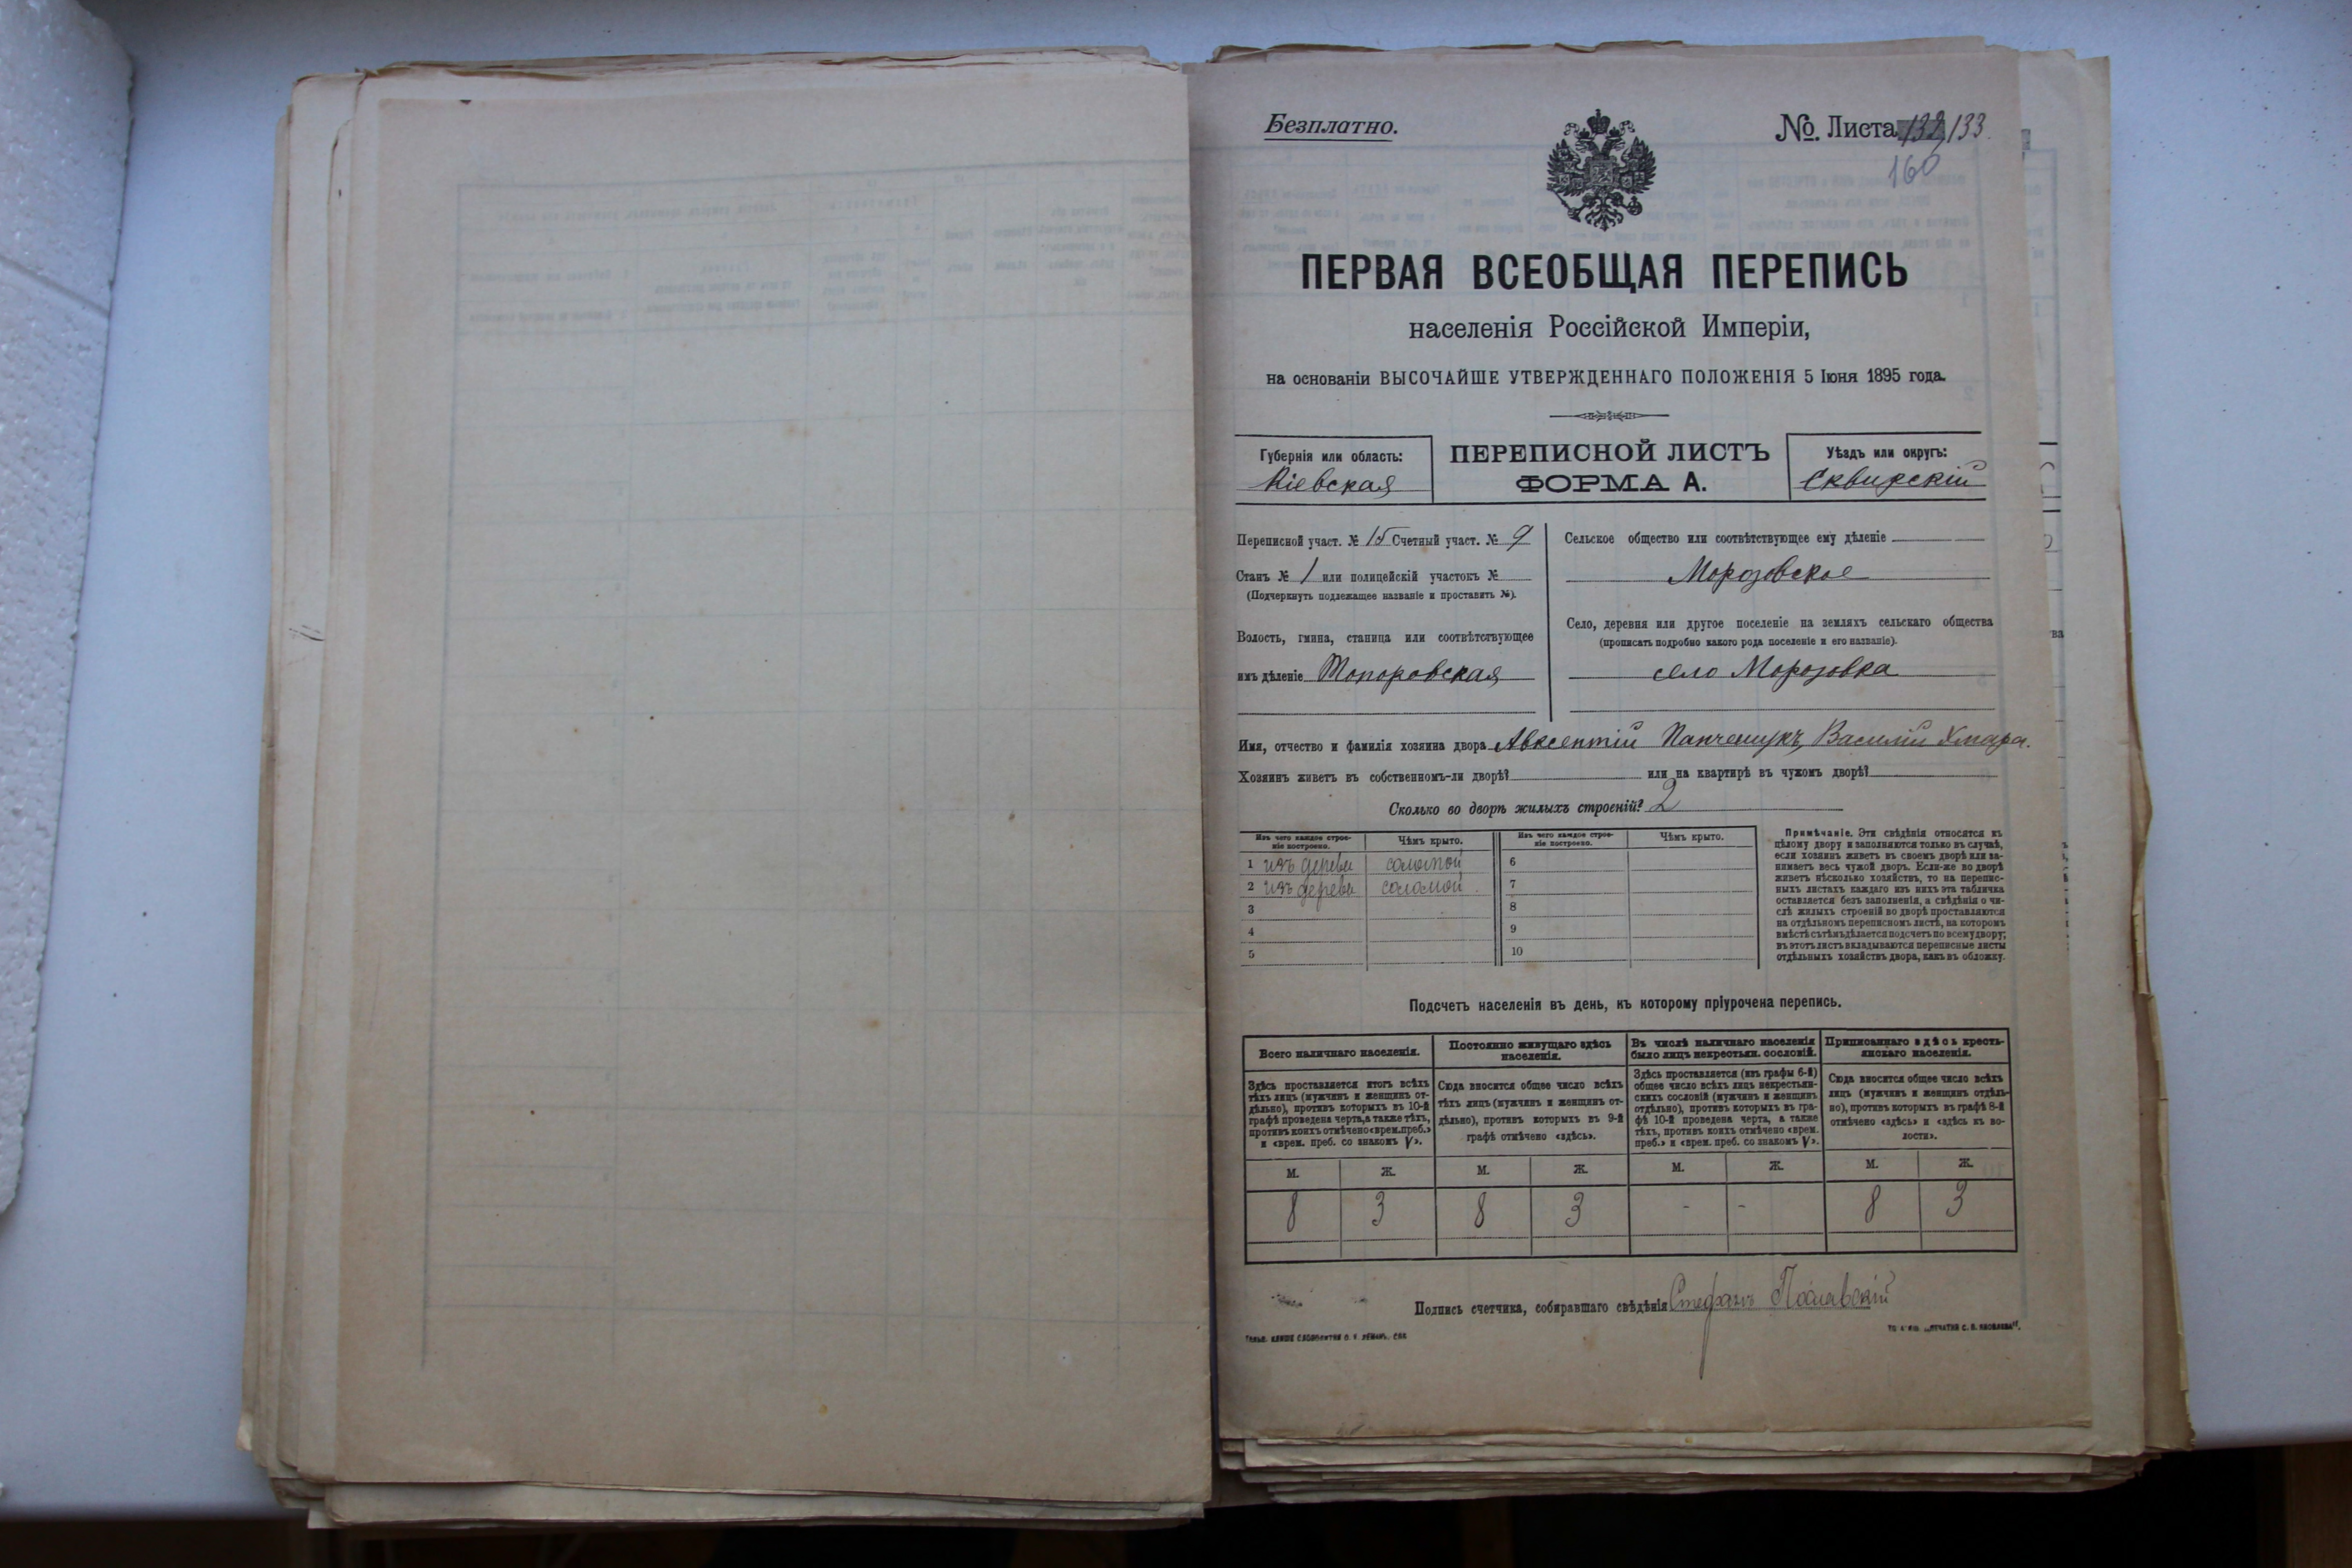 Безплатно.
№. Листа 132, 133.
160
ПЕРВАЯ ВСЕОБЩАЯ ПЕРЕПИСЬ
населенія Россійской Имперіи,
на основаніи ВЫСОЧАЙШЕ УТВЕРЖДЕННАГО ПОЛОЖЕНІЯ 5 Іюня 1895 года.
Губернія или область:
Кіевская
ПЕРЕПИСНОЙ ЛИСТЪ
ФОРМА А.
Уѣздъ или округъ:
Сквирскій
Переписной участ. № 15 Счетный участ. № 9
Станъ № 1 или полицейскій участокъ №
(Подчеркнуть подлежащее названіе и проставить №).
Волость, гмина, станица или соотвѣтствующее
имъ дѣленіе Топоровская
Сельское общество или соотвѣтствующее ему дѣленіе
Морозовское
Село, деревня или другое поселеніе на земляхъ сельскаго общества
(прописать подробно какого рода поселеніе и его названіе).
село Морозовка
Имя, отчество и фамилія хозяина двора Авксентій Панчешукъ, Василій Хмара.
Хозяинъ живетъ въ собственномъ-ли дворѣ? или на квартирѣ въ чужомъ дворѣ?
Сколько во дворѣ жилыхъ строеній? 2
Изъ чего каждое строе-
ніе построено.
Чѣмъ крыто.
Изъ чего каждое строе-
ніе построено.
Чѣмъ крыто.
1 изъ дерева соломой 6
2 изъ дерева соломой 7
3 8
4 9
5 10
Примѣчаніе. Эти свѣдѣнія относятся къ
цѣлому двору и заполняются только въ случаѣ,
если хозяинъ живетъ въ своемъ дворѣ или за-
нимаетъ весь чужой дворъ. Если-же во дворѣ
живетъ нѣсколько хозяйствъ, то на перепис-
ныхъ листахъ каждаго изъ нихъ эта табличка
оставляется безъ заполненія, а свѣдѣнія о чи-
слѣ жилыхъ строеній во дворѣ проставляются
на отдѣльномъ переписномъ листѣ, на которомъ
вмѣстѣ съ тѣмъ дѣлается подсчетъ по всему двору;
въ этотъ листъ вкладываются переписные листы
отдѣльныхъ хозяйствъ двора, какъ въ обложку.
Подсчетъ населенія въ день, къ которому пріурочена перепись.
Всего наличнаго населенія.
Здѣсь проставляется итогъ всѣхъ
тѣхъ лицъ (мужчинъ и женщинъ от-
дѣльно), противъ которыхъ въ 10-й
графѣ проведена черта, а также тѣхъ,
противъ коихъ отмѣчено «врем. преб.»
и «врем. преб. со знакомъ V».
Постоянно живущаго здѣсь
населенія.
Сюда вносится общее число всѣхъ
тѣхъ лицъ (мужчинъ и женщинъ от-
дѣльно), противъ которыхъ въ 9-й
графѣ отмѣчено «здѣсь».
Въ числѣ наличнаго населенія
было лицъ некрестьян. сословій.
Здѣсь проставляется (изъ графы 6-й)
общее число всѣхъ лицъ некрестьян-
скихъ сословій (мужчинъ и женщинъ
отдѣльно), противъ которыхъ въ гра-
фѣ 10-й проведена черта, а также
тѣхъ, противъ коихъ отмѣчено «врем.
преб.» и «врем. преб. со знакомъ V».
Приписаннаго здѣсь кресть-
янскаго населенія.
Сюда вносится общее число всѣхъ
лицъ (мужчинъ и женщинъ отдѣль-
но), противъ которыхъ въ графѣ 8-й
отмѣчено «здѣсь» и «здѣсь къ во-
лости».
М. Ж. М. Ж. М. Ж. М. Ж.
8 3 8 3 - - 8 3
Подпись счетчика, собиравшаго свѣдѣнія Стефанъ